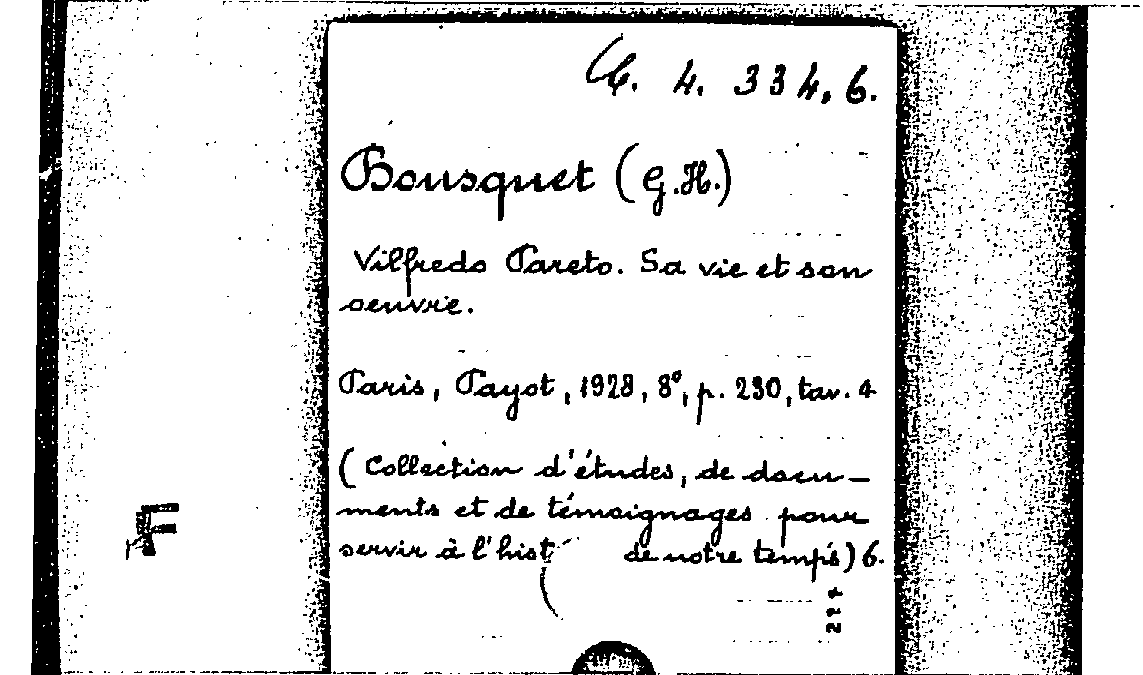 C. 4. 334, 6.
Bousquet (G.H.)
Vilfredo Pareto. Sa vie et son
oeuvre.
Paris, Payot, 1928, 8°, p. 230, tav. 4
(Collection d'études, de docu-
ments et de témoignages pour
servir à l'hist de notre temps) 6.
F